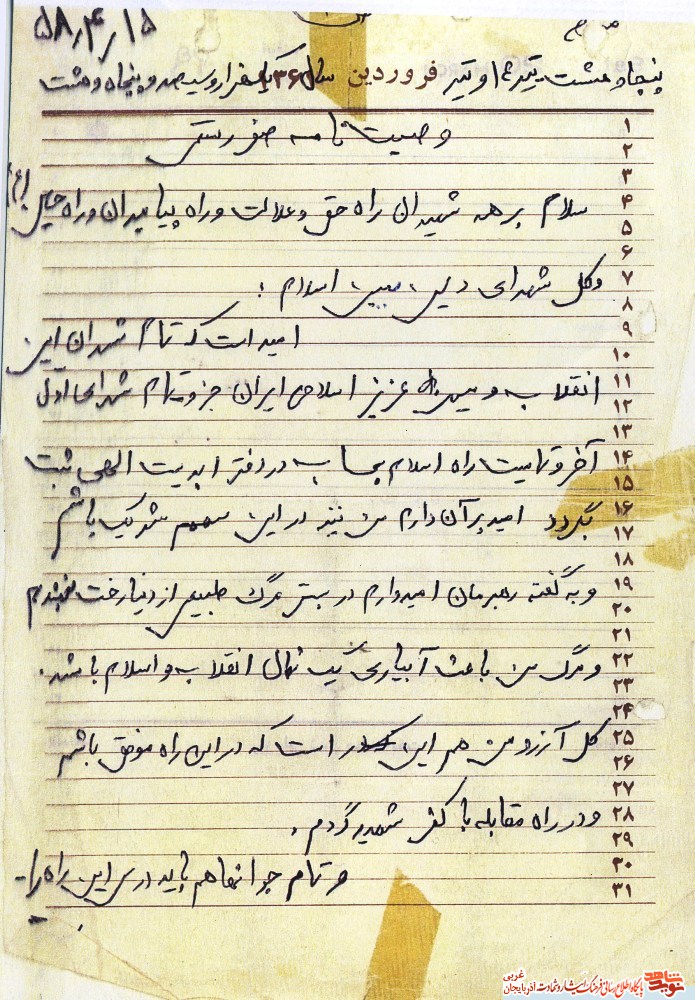 ۵۸/۴/۱۵
پنجاه و هشت تیر ۱۵ و تیر فروردین سال ۱۳۶ یکهزار و سیصد و پنجاه و هشت
۱
وصیت نامه صفر رستمی
۲
۳
۴
سلام بر همه شهیدان راه حق و عدالت و راه پیامبران و راه حسین (ع)
۵
۶
۷
و کل شهدای دین مبین اسلام :
۸
۹
امید است که تمام شهیدان این
۱۰
۱۱
انقلاب و میهن عزیز اسلامی ایران جزو تمام شهدای اول
۱۲
۱۳
۱۴
آخر و تمامیت راه اسلام بحساب در دفتر ابدیت الهی ثبت
۱۵
۱۶
بگردد امید بر آن دارم من نیز در این سهم شریک باشم
۱۷
۱۸
۱۹
و به گفته رهبرمان امیدوارم در بستر مرگ طبیعی از دنیا رخت نبندم
۲۰
۲۱
۲۲
و مرگ من باعث آبیاری یک نهال انقلاب و اسلام باشد.
۲۳
۲۴
۲۵
کل آرزو من هم این است که در این راه موفق باشم
۲۶
۲۷
۲۸
و در راه مقابله با کفر شهید گردم .
۲۹
۳۰
و تمام جوانها هم باید درس این راه را
۳۱
نوید شاهد
پایگاه اطلاع رسانی فرهنگ ایثار و شهادت آذربایجان غربی